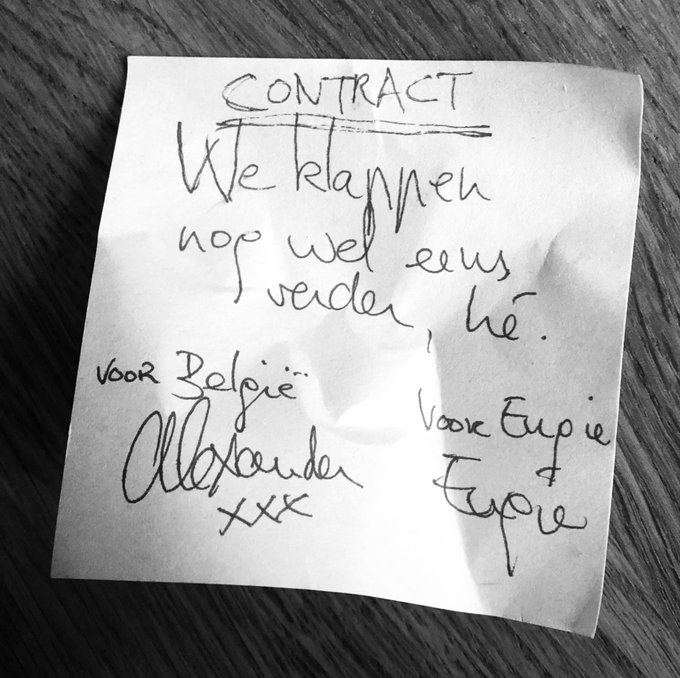 CONTRACT
We klappen
nog wel eens
verder, hé.
VOOR België
Alexander
xxx
Voor Eugie
Eugie